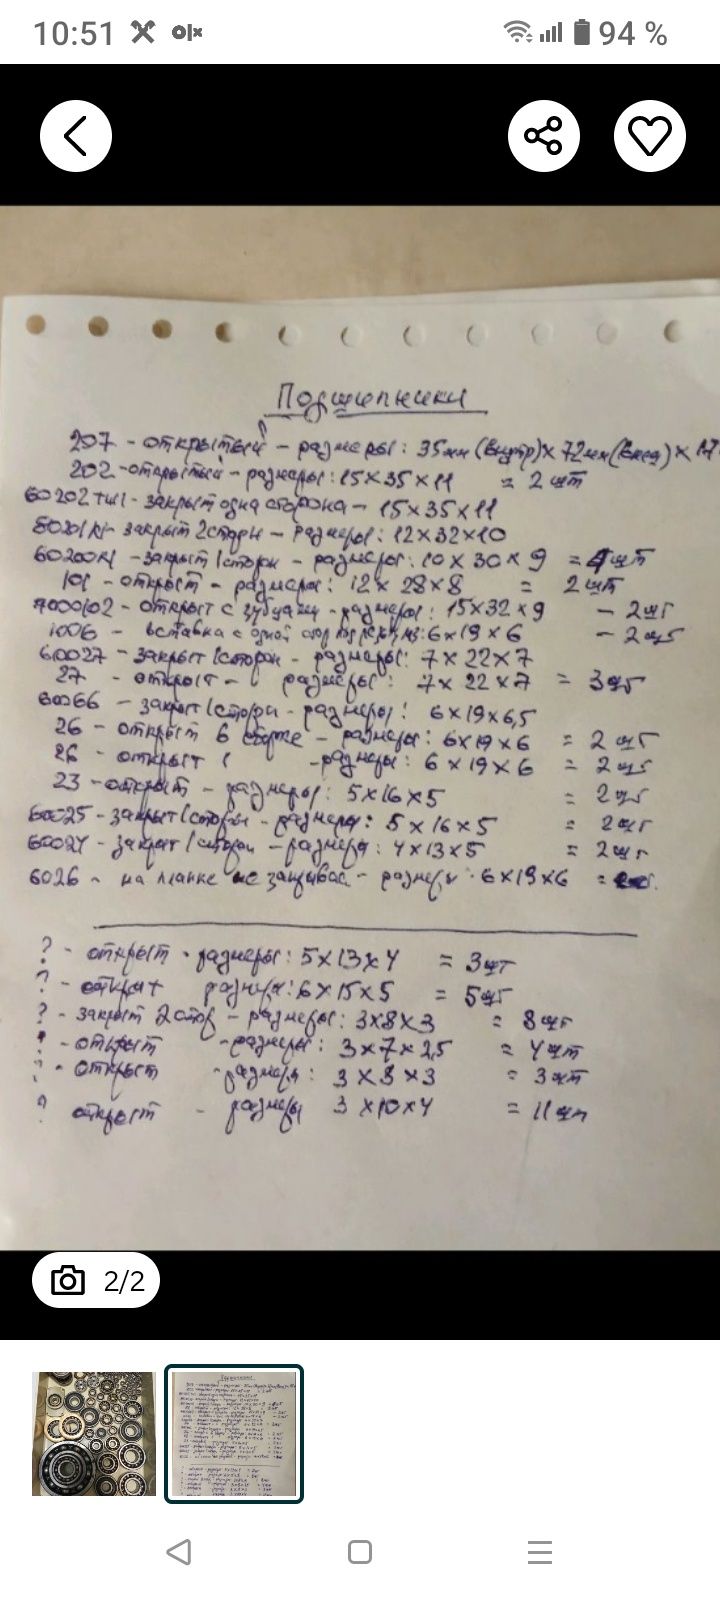 10:51 olx 94 %
Подшипники
207 - открытый - размеры: 35мм (внутр) х 72мм (внеш) х 17
202 - открытый - размеры: 15х35х11 = 2 шт
60202 - закрыт одна сторона - 15х35х11
закрыт 2 сторон - размеры: 12х32х10
закрыт 1 сторон - размеры: 10 х 30 х 9 = 4 шт
101 - открыт - размеры: 12 х 28 х 8 = 2 шт
7000102 - открыт с зубцами - размеры: 15х32 х 9 - 2 шт
1006 - вставка с одной стор размеры: 6х19 х 6 - 2 шт
60027 - закрыт 1 сторон - размеры: 7 х 22 х 7
27 - открыт - размеры: 7 х 22 х 7 = 3 шт
60066 - закрыт 1 сторон - размеры: 6 х 19 х 6,5
26 - открыт в сборке - размеры: 6х19 х 6 = 2 шт
26 - открыт - размеры: 6 х 19 х 6 = 2 шт
23 - открыт - размеры: 5 х 16 х 5 = 2 шт
60025 - закрыт 1 сторон - размеры: 5 х 16 х 5 = 2 шт
60024 - закрыт 1 сторон - размеры: 4 х 13 х 5 = 2 шт
6026 - на планке не закрывас - размеры 6 х 19 х 6 =
? - открыт - размеры: 5 х 13 х 4 = 3 шт
? - открыт размеры: 6 х 15 х 5 = 5 шт
? - закрыт 2 стор - размеры: 3х8 х 3 = 8 шт
? - открыт - размеры: 3 х 7 х 2,5 = 4 шт
? - открыт - размеры: 3 х 8 х 3 = 3 шт
? открыт - размеры 3 х 10 х 4 = 11 шт
2/2